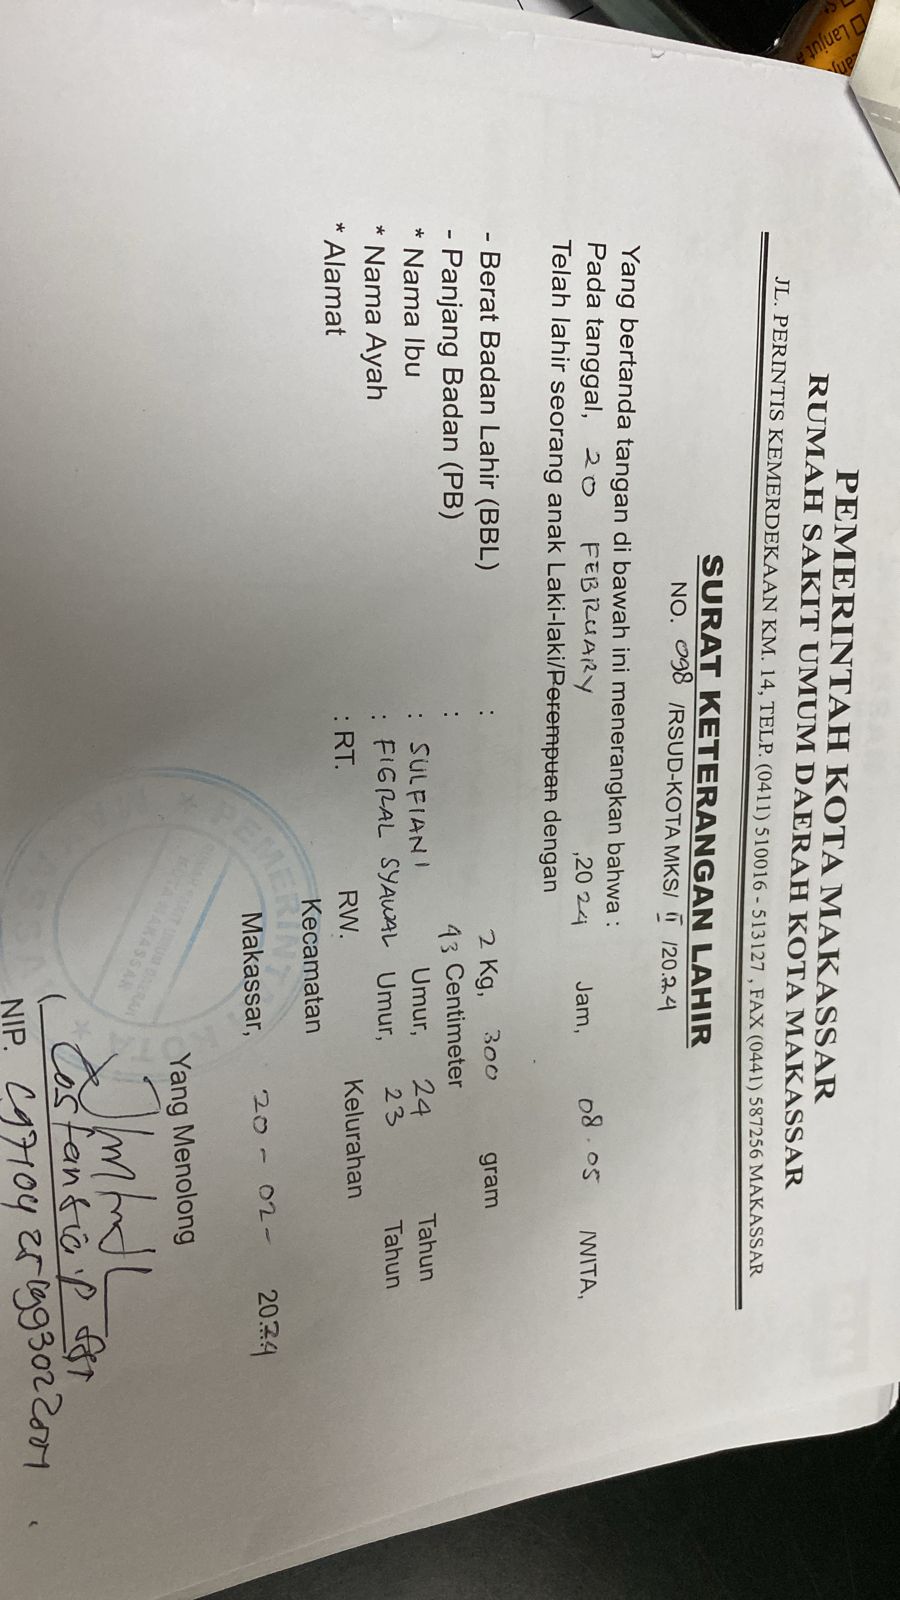 Lanjut
PEMERINTAH KOTA MAKASSAR
RUMAH SAKIT UMUM DAERAH KOTA MAKASSAR
JL. PERINTIS KEMERDEKAAN KM. 14, TELP. (0411) 510016 - 513127 , FAX (0441) 587256 MAKASSAR
SURAT KETERANGAN LAHIR
NO. 098 /RSUD-KOTA MKS/ II /20.24
Yang bertanda tangan di bawah ini menerangkan bahwa :
Pada tanggal, 20 FEBRUARY ,2024 Jam, 08.05 /WITA,
Telah lahir seorang anak Laki-laki/Perempuan dengan
- Berat Badan Lahir (BBL) : 2 Kg, 300 gram
- Panjang Badan (PB) : 43 Centimeter
* Nama Ibu : SULFIANI Umur, 24 Tahun
* Nama Ayah : FIGRAL SYAWAL Umur, 23 Tahun
* Alamat : RT. RW. Kelurahan
Kecamatan
Makassar, 20 - 02 - 2024
PEMERINTAH KOTA MAKASSAR
RUMAH SAKIT UMUM DAERAH
KOTA MAKASSAR
Yang Menolong
Costantia .P SST
NIP.